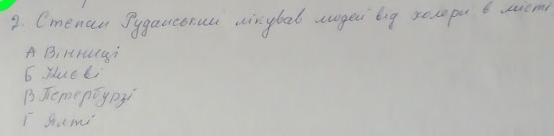 2. Степан Руданський лікував людей від холери в місті
А Вінниці
Б Києві
В Петербурзі
Г Ялті